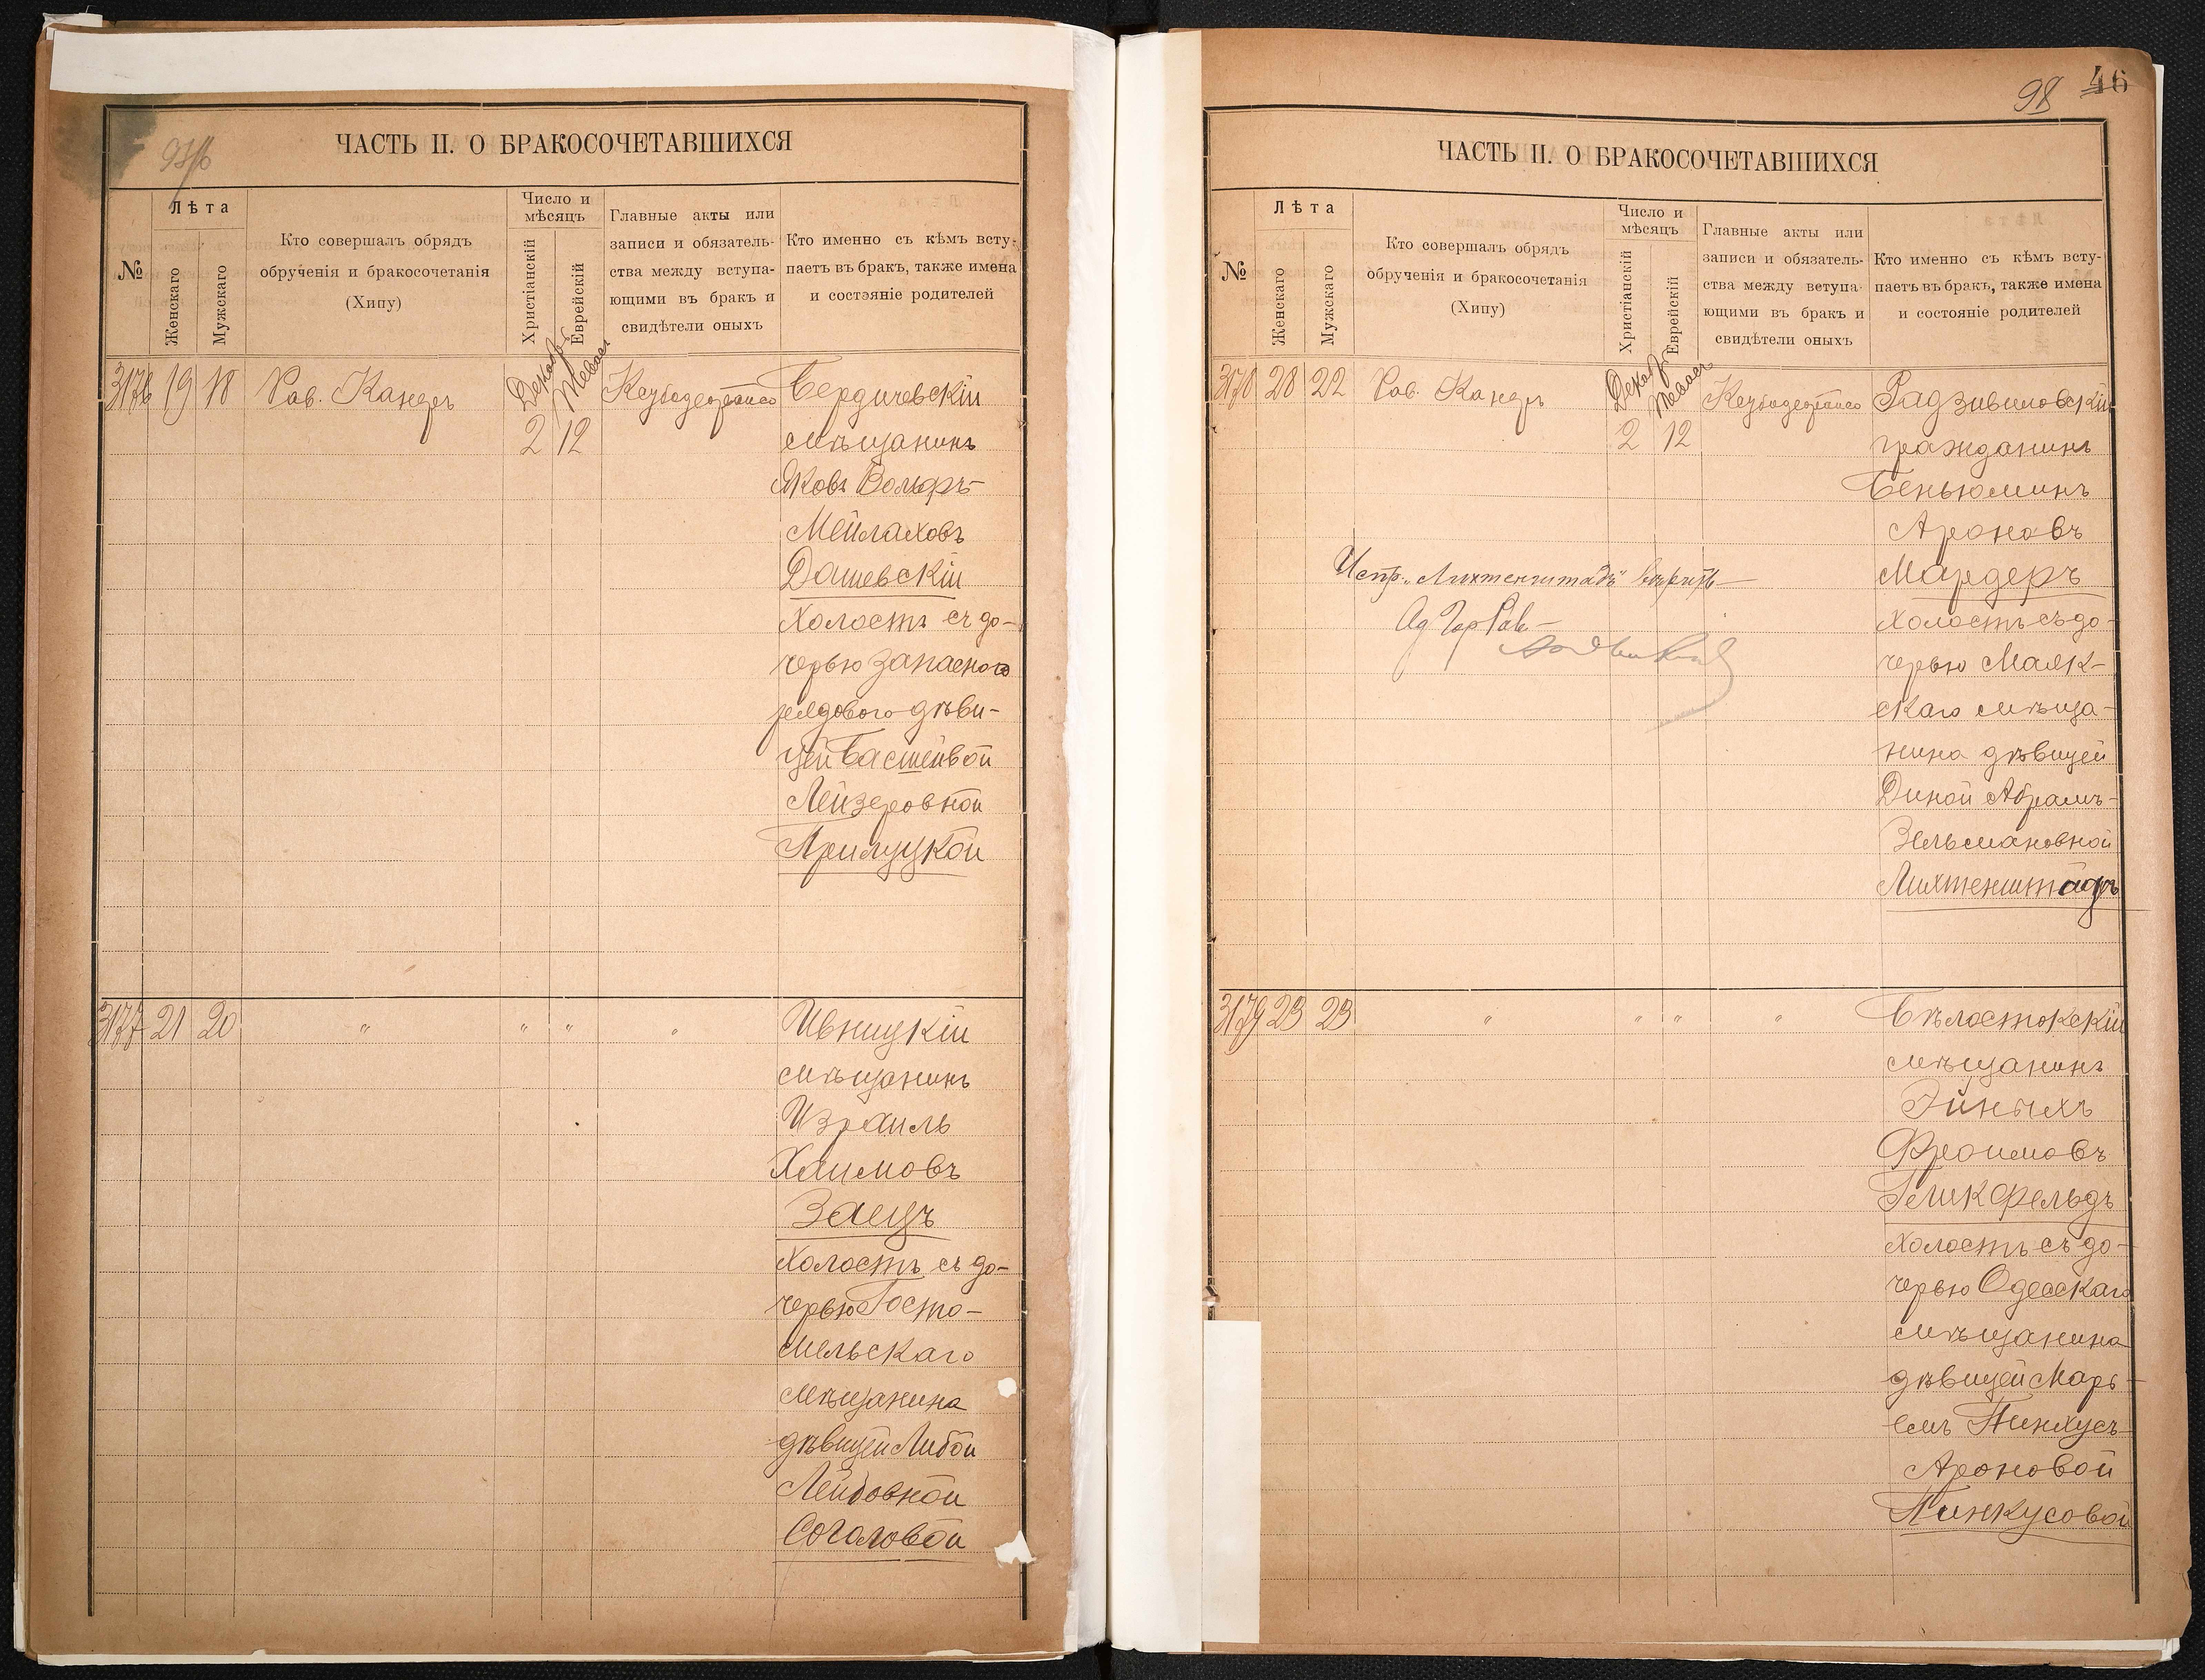 ЧАСТЬ II. О БРАКОСОЧЕТАВШИХСЯ
№
Лѣта
Женскаго
Мужскаго
Кто совершалъ обрядъ
обрученія и бракосочетанія
(Хипу)
Число и
мѣсяцъ
Христіанскій
Еврейскій
Главные акты или
записи и обязатель-
ства между вступа-
ющими въ бракъ и
свидѣтели оныхъ
Кто именно съ кѣмъ всту-
паетъ въ бракъ, также имена
и состояніе родителей
3176 19 18 Рав. Канеръ
Декабр. Тевесъ
2 12
Бердичевскій
мѣщанинъ
Яковъ Вольфъ-
Мейлаховъ
Дашевскій
холостъ съ до-
черью запасного
рядового дѣви-
цей Басшейвой
Лейзеровной
Прилуцкой
3177 21 20 " " " "
Ивницкій
мѣщанинъ
Израиль
Хаимовъ
Заецъ
холостъ съ до-
черью Госто-
мельскаго
мѣщанина
дѣвицей Либой
Лейбовной
Соголовой
98 46
ЧАСТЬ II. О БРАКОСОЧЕТАВШИХСЯ
№
Лѣта
Женскаго
Мужскаго
Кто совершалъ обрядъ
обрученія и бракосочетанія
(Хипу)
Число и
мѣсяцъ
Христіанскій
Еврейскій
Главные акты или
записи и обязатель-
ства между вступа-
ющими въ бракъ и
свидѣтели оныхъ
Кто именно съ кѣмъ всту-
паетъ въ бракъ, также имена
и состояніе родителей
3178 28 22 Рав. Канеръ
Декабр. Тевесъ
2 12
Радзивиловскій
гражданинъ
Беньюминъ
Ароновъ
Мардеръ
холостъ съ до-
черью Маяк-
скаго мѣща-
нина дѣвицей
Диной Абрамъ-
Зельмановной
Лихтенштадъ
Испр. „Лихтенштадъ" вѣрить
Од Гор Рав
3179 23 23 " " " "
Бѣлостокскій
мѣщанинъ
Эйныхъ
Фроимовъ
Гликфельдъ
холостъ съ до-
черью Одесскаго
мѣщанина
дѣвицей Марь-
емъ Пинхусъ-
Ароновой
Пинкусовой